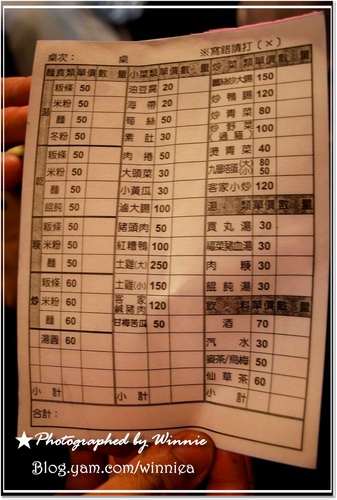 桌次： 桌 ※寫錯請打（×）
麵食類 單價 數量 小菜類 單價 數量 炒菜類 單價 數量
湯 粄條 50 油豆腐 20 薑絲炒大腸 150
米粉 50 海帶 20 炒鴨腸 120
麵 50 筍絲 50 炒青菜 80
冬粉 50 素肚 30 炒野菜（過貓） 100
乾 粄條 50 肉捲 50 燙青菜 40
米粉 50 大頭菜 30 九層塔蛋 (大) 80 (小) 50
麵 50 小黃瓜 30 客家小炒 120
餛飩 50 滷大腸 100 湯類 單價 數量
粳 粄條 50 豬頭肉 50 貢丸湯 30
米粉 50 紅糟鴨 100 福菜豬血湯 30
麵 50 土雞(大) 250 肉粳 30
炒 粄條 60 土雞(小) 150 餛飩湯 30
米粉 60 客家鹹豬肉 120 飲料 單價 數量
麵 60 甘梅苦瓜 50 酒 70
湯圓 60 汽水 30
麥茶/烏梅 50
仙草茶 60
小計 小計 小計
合計：
★Photographed by Winnie
Blog.yam.com/winniea